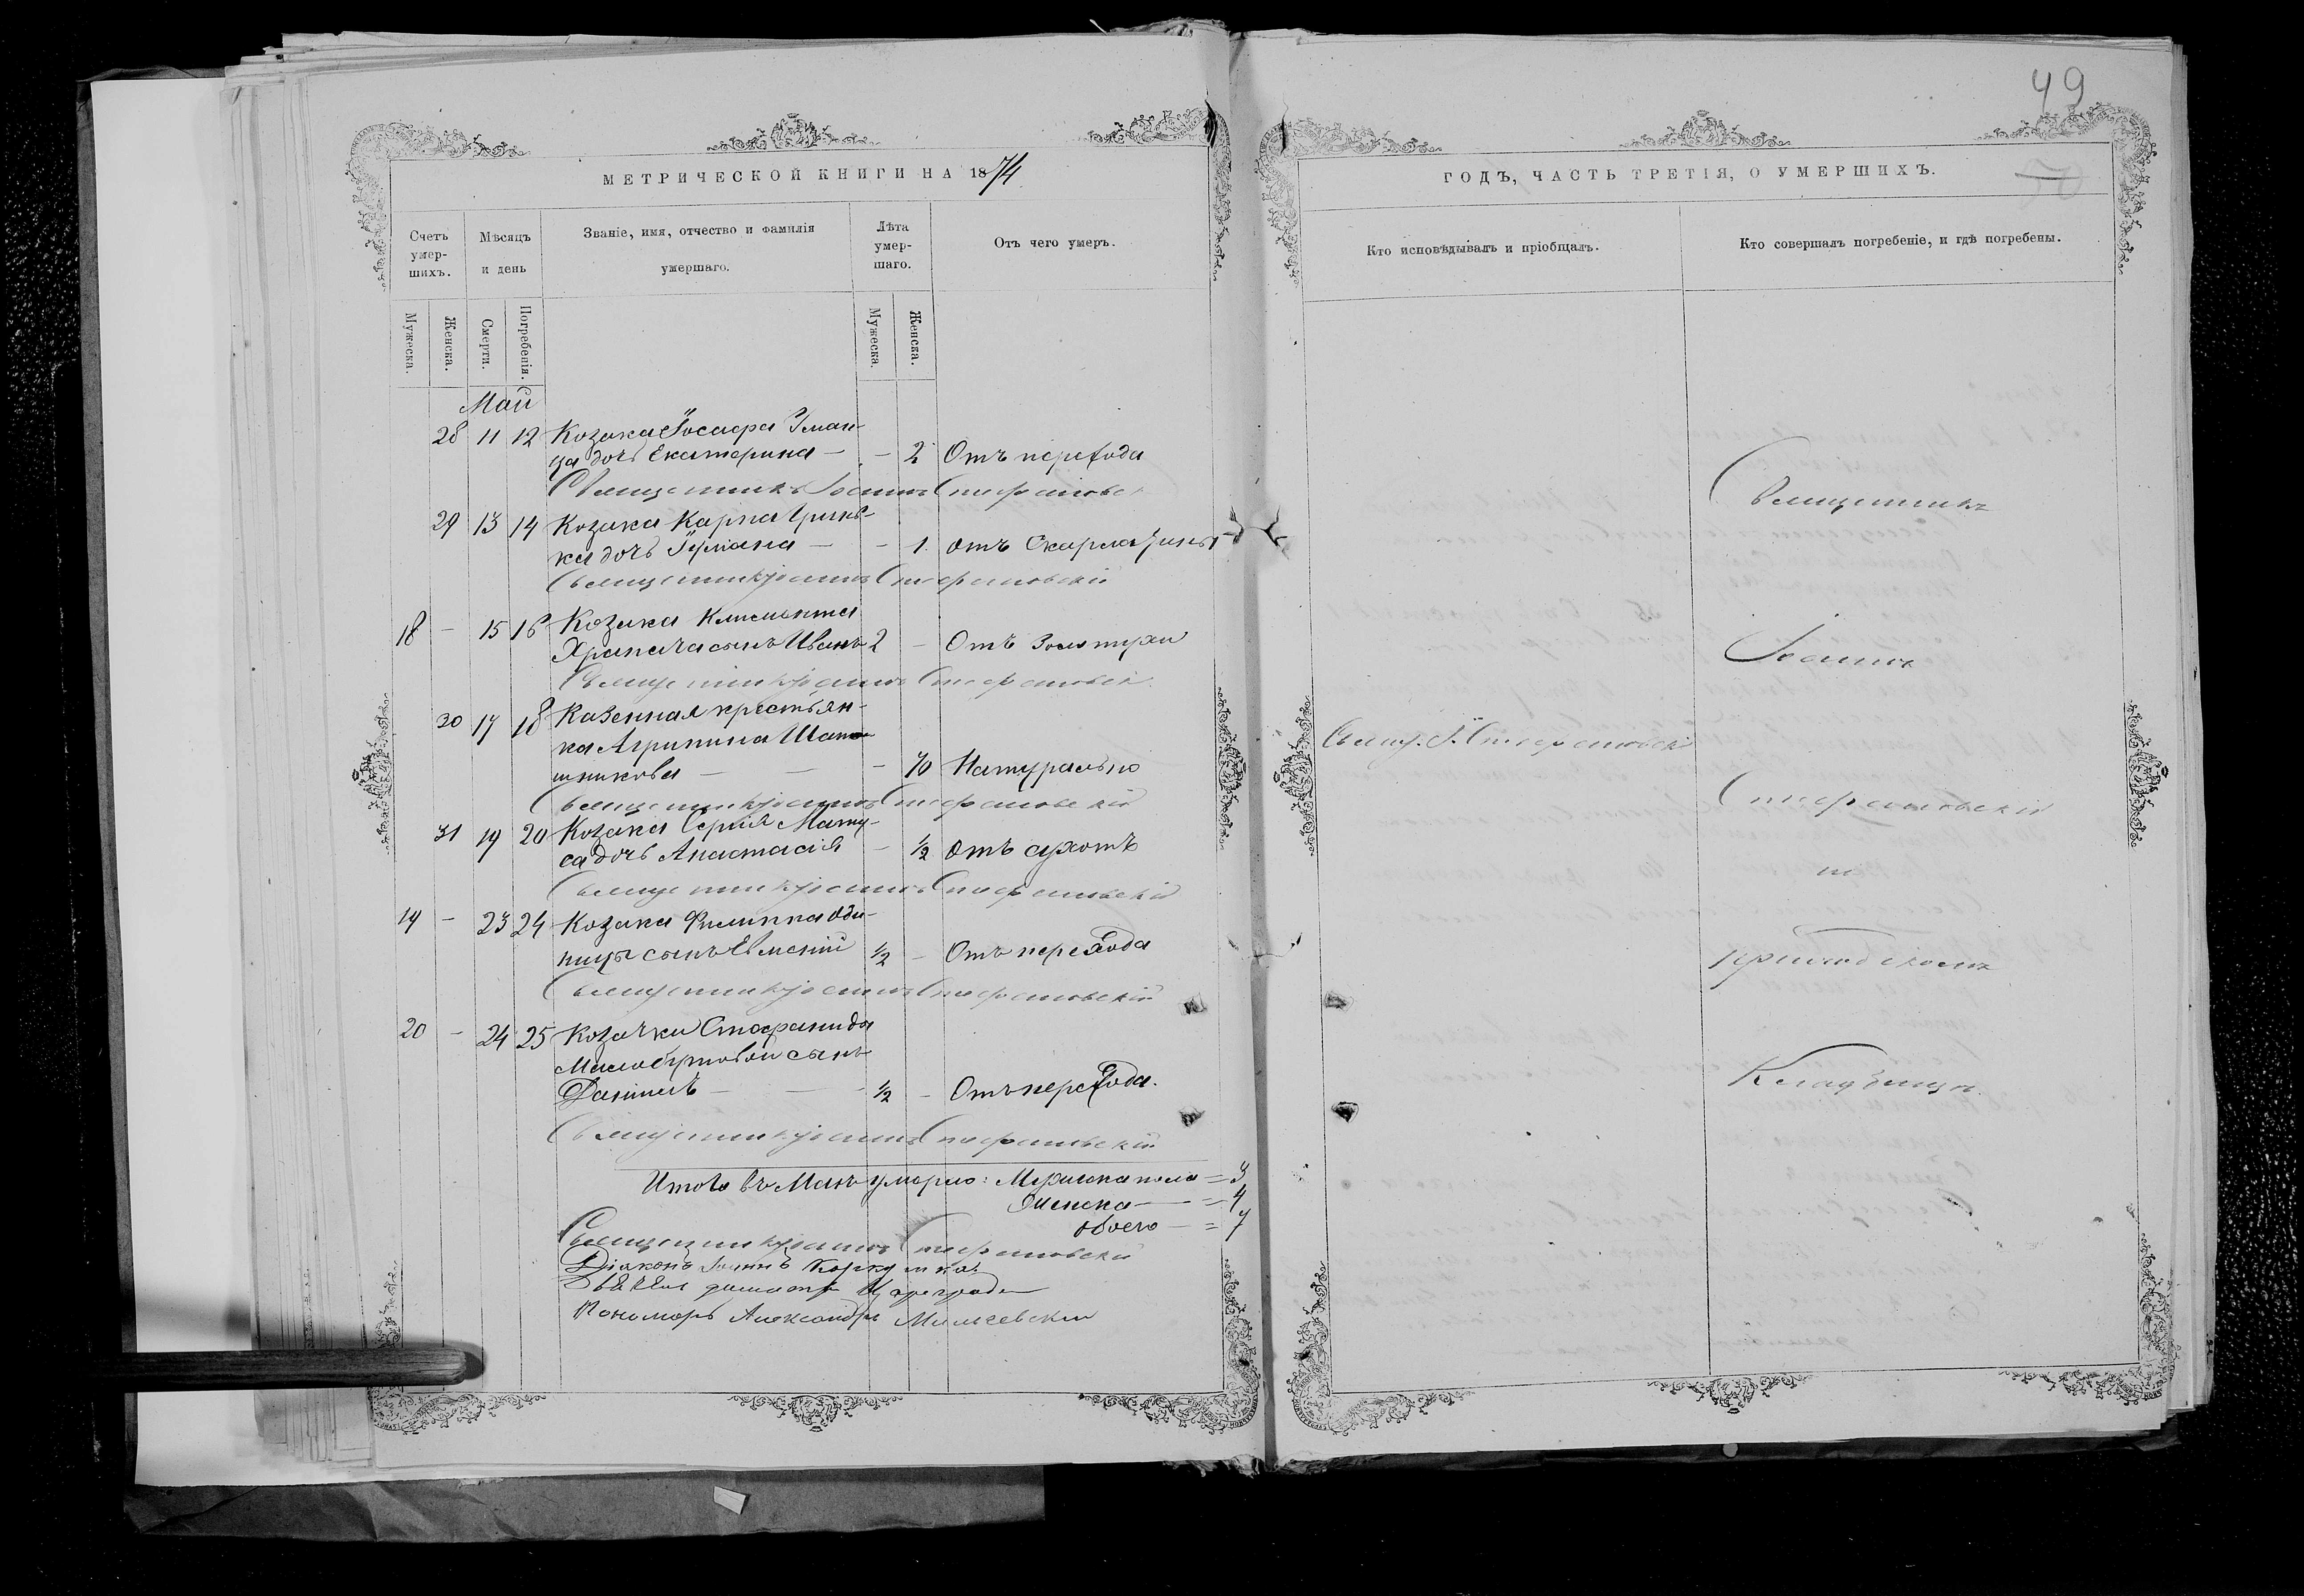 49
МЕТРИЧЕСКОЙ КНИГИ НА 1874
ГОДЪ, ЧАСТЬ ТРЕТІЯ, О УМЕРШИХЪ.
Счетъ умер- шихъ.
Мѣсяцъ и день
Званіе, имя, отчество и фамилія
умершаго.
Лѣта умер- шаго.
Отъ чего умеръ.
Кто исповѣдывалъ и пріобщалъ.
Кто совершалъ погребеніе, и гдѣ погребены.
Мужеска.
Женска.
Смерти.
Погребенія.
Мужеска.
Женска.
Май
28 11 12 Козака Іосафа Уман-
ца дочь Екатерина — - 2 Отъ перехода
Священникъ Іоаннъ Стефановск
29 13 14 Козака Карпа Гринь-
ка дочь Іуліана — - 1. отъ Скарлатины
Священникъ Іоаннъ Стефановскій
18 - 15 16 Козака Климента
Храпача сынъ Иванъ 2 - Отъ Золотухи
Священникъ Іоаннъ Стефановск
30 17 18 Казенная крестьян-
ка Агрипина
шникова — - 70 Натурально
Священникъ Іоаннъ Стефановскій
31 19 20 Козака Сергія Мату-
са дочь Анастасія - 1/2 отъ сухотъ
Священникъ Іоаннъ Стефановскій
19 - 23 24 Козака Филиппа Оди-
ницы сынъ 1/2 - Отъ перехода
Священникъ Іоаннъ Стефановскій
20 - 24 25 Козачки Стефаниды
сынъ
Даніилъ — 1/2 - Отъ перехода.
Священникъ Іоаннъ Стефановскій
Итого въ Маѣ умерло: Мужеска пола = 3
Женска — = 4
обоего — = 7
Священникъ Іоаннъ Стефановскій
Діаконъ Іоаннъ
Пономарь Александръ
Свящ. І. Стефановскій
Священникъ
Іоаннъ
Стефановскій
на
приходскомъ
Кладбищѣ.